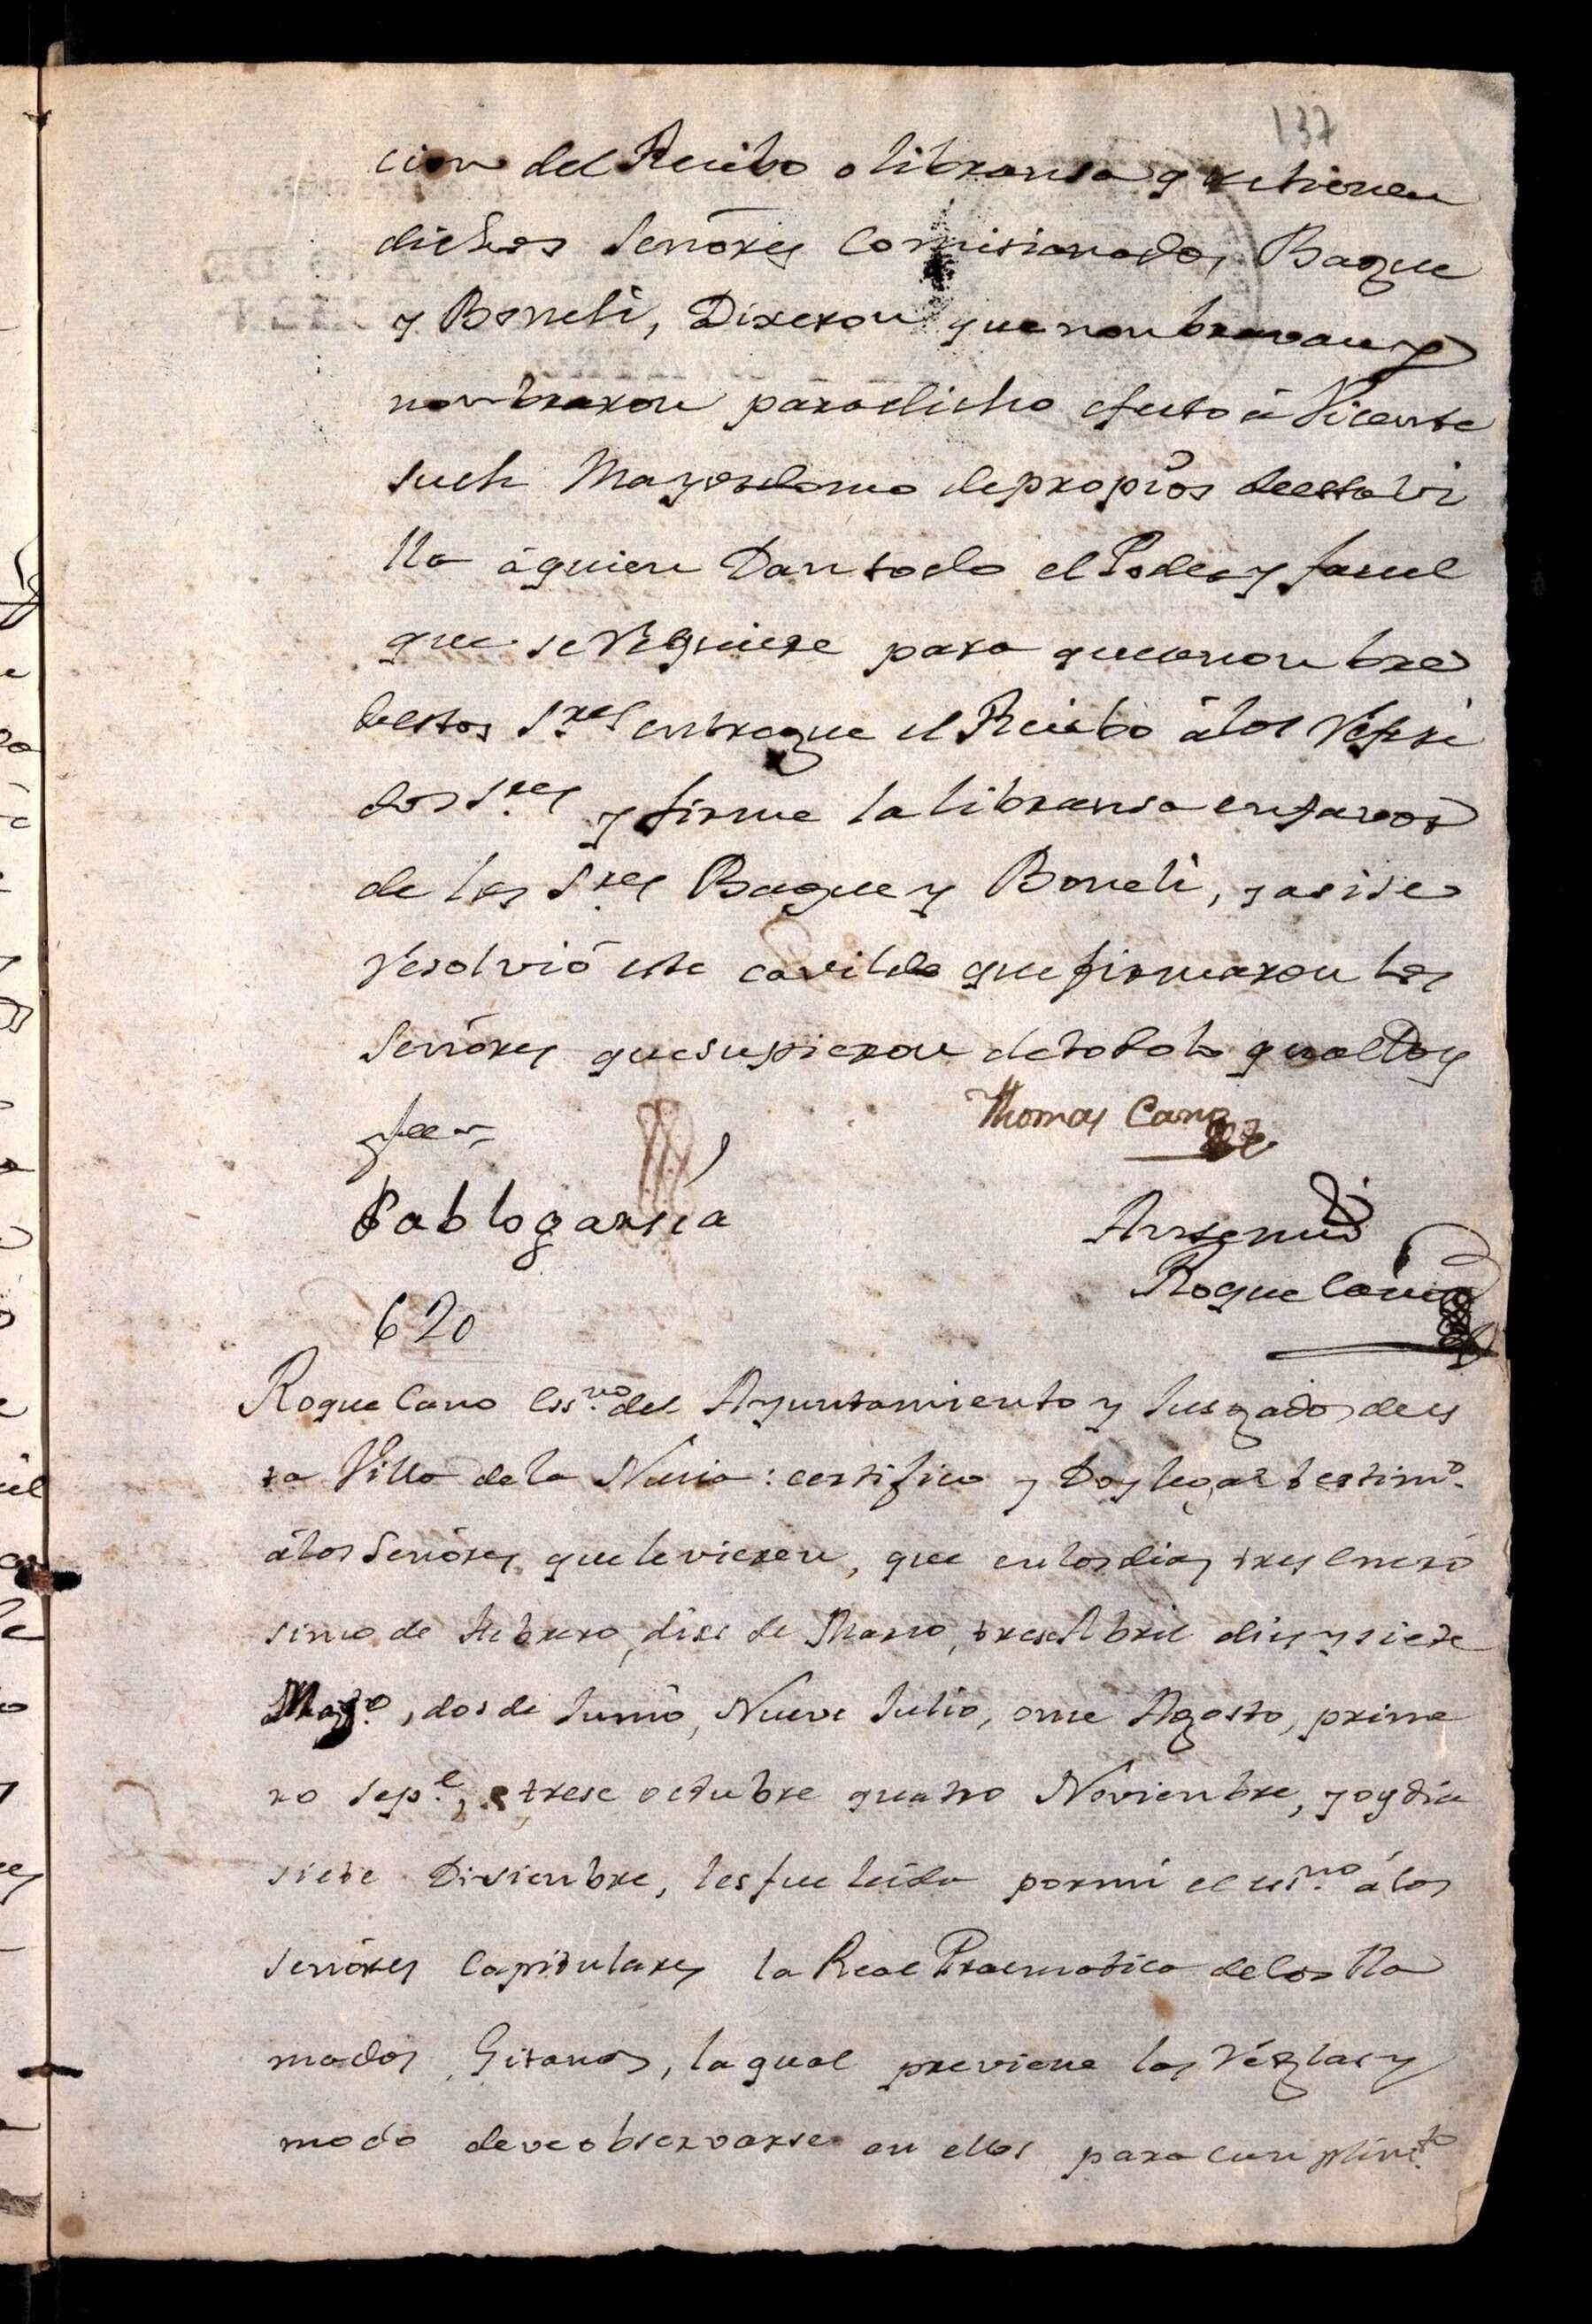 137
cion del Recibo o libransa q retienen
dichos Señores Comisionados, Baque
y Boneli, Dixeron que nonbravan y
nonbraron para dicho efecto á Vicente
Such Mayordomo de propios de esta Vi
lla á quien Dan todo el Poder y facul
que se Requiere para que a nonbre
de estos S.res entregue el Recibo á los Referi
dos S.res y firme la libransa en favor
de los S.res Baque y Boneli, y asi se
Resolvió este cavildo que firmaron los
Señores que supieron de todo lo qual Doy
fee =
Thomas Cano
Pablo garsia
Antemi
Roque Cano
620
Roque Cano Ess.no del Ayuntamiento y Jusgado de es
ta Villa de la Nucia: certifico y Doy legal testim.o
á los Señores que le vieren, que en los dias tres Enero
simo de Febrero, dies de Marso, trese Abril dies y siete
Mayo, dos de Junio, Nueve Julio, onse Agosto, prime
ro Sep.e, trese octubre quatro Noviembre, y oy dia
siete Disienbre, les fue leida por mi el ess.no á los
Señores Capitulares la Real Pracmatica de los lla
mados Gitanos, la qual previene las Réglas y
modo deve observarse en ellos para cunplim.to